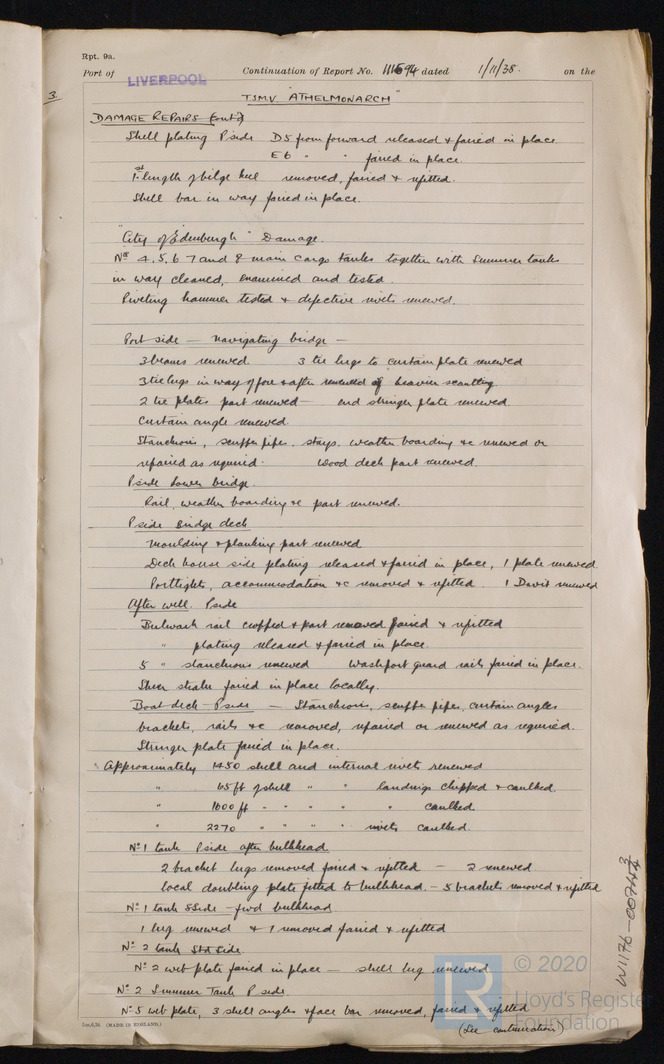 Rpt. 9a.
Port of LIVERPOOL Continuation of Report No. 111594 dated 1/11/38. on the
3.
T.S.M.V. "ATHELMONARCH"
DAMAGE REPAIRS (cont'd)
Shell plating P side D5 from forward released & faired in place
E6 " " faired in place.
1st length of bilge keel removed, faired & refitted.
Shell bar in way faired in place.
"City of Edenburgh" Damage.
Nos 4, 5, 6 7 and 8 main cargo tanks together with Summer tanks
in way cleaned, examined and tested.
Riveting hammer tested & defective rivets renewed.
Port side — navigating bridge —
3 beams renewed. 3 tie lugs to curtain plate renewed
3 tie lugs in way of fore & after renewed of heavier scantling.
2 tie plates part renewed — end stringer plate renewed.
Curtain angle renewed.
Stanchions, scupper pipes, stays, weather boarding &c renewed or
repaired as required. Wood deck part renewed.
P side Lower bridge.
Rail, weather boarding &c part renewed.
P side Bridge deck
Moulding & planking part renewed
Deck house side plating released & faired in place, 1 plate renewed.
Portlights, accommodation &c removed & refitted. 1 Davit renewed
After well. P side
Bulwark rail cropped & part removed faired & refitted
" plating released & faired in place.
5 " stanchions renewed Washport guard rails faired in place.
Sheer strake faired in place locally.
Boat deck - P side — Stanchions, scupper pipes, curtain angles
brackets, rails &c removed, repaired or renewed as required.
Stringer plate faired in place.
Approximately 1450 shell and internal rivets renewed
" 65 ft of shell " " landings chipped & caulked.
" 1600 ft " " " " caulked.
" 2270 " " " " rivets caulked.
No 1 tank P side after bulkhead
2 bracket lugs removed faired & refitted — 2 renewed
local doubling plate fitted to bulkhead. — 5 brackets removed & refitted
No 1 tank S Side - fwd bulkhead
1 lug renewed & 1 removed faired & refitted
No 2 tank Std Side.
No 2 web plate faired in place — shell lug renewed
No 2 Summer Tank P side.
No 5 web plate, 3 shell angles & face bar removed, faired & refitted
(See continuation)
(MADE IN ENGLAND.)
© 2020
LR
Lloyd's Register
Foundation